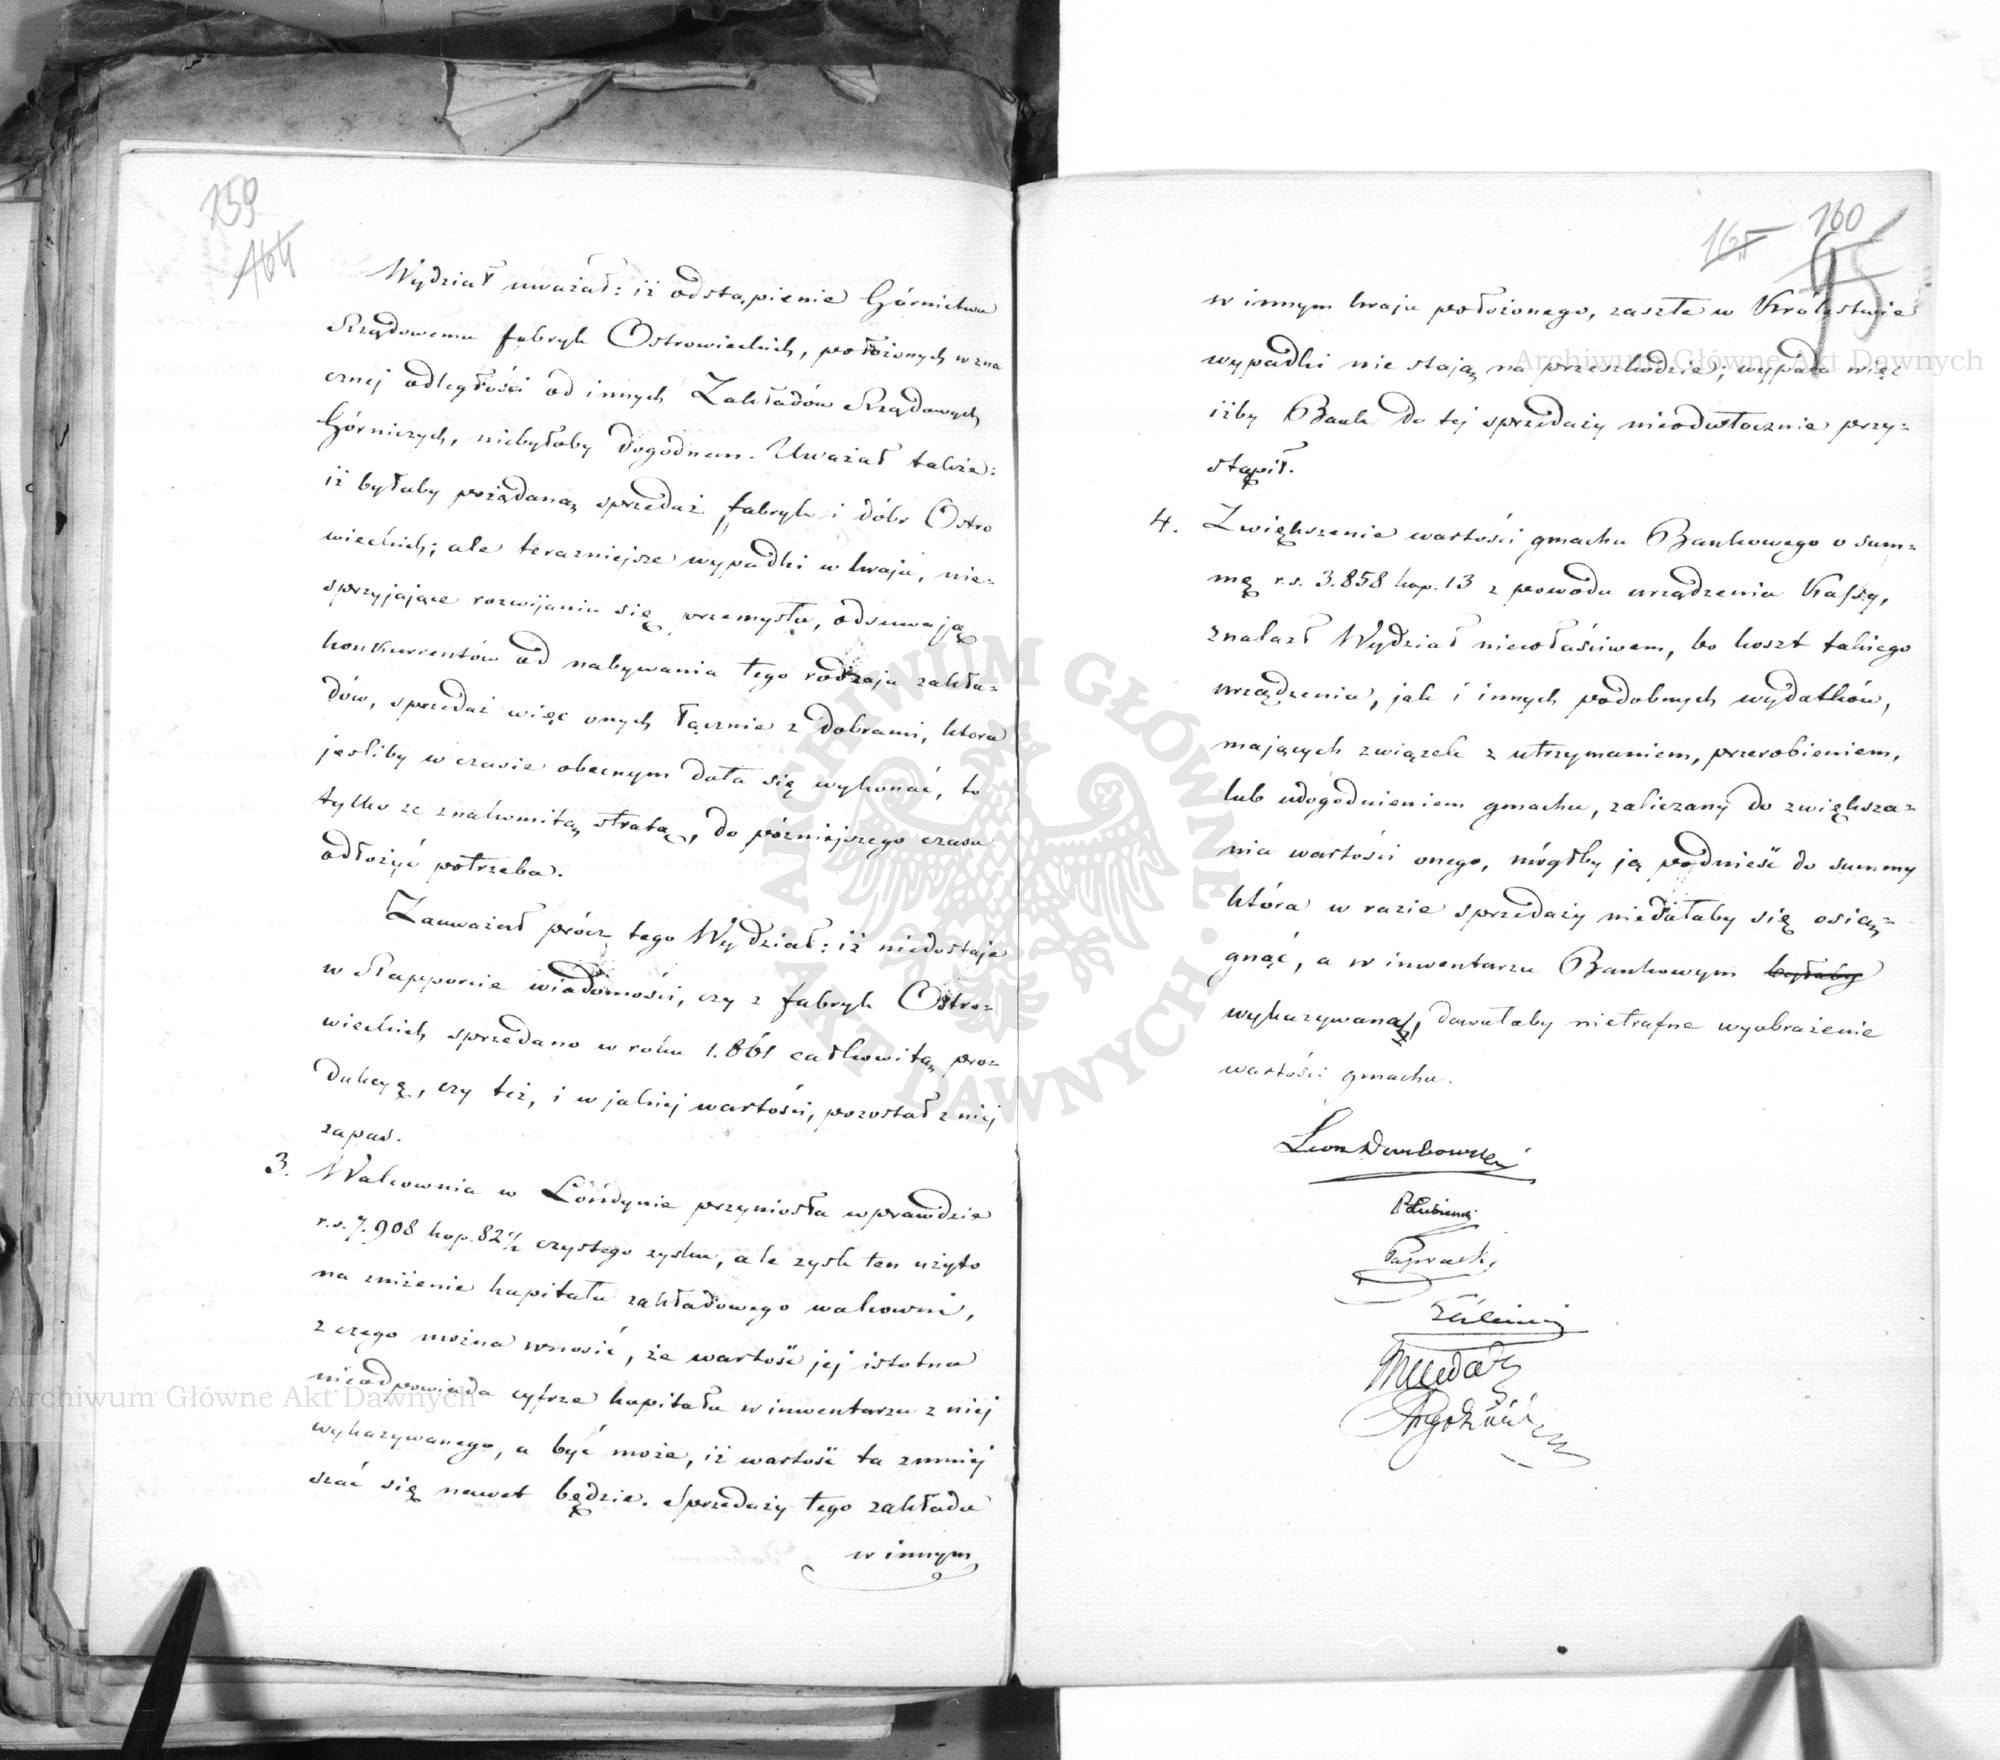 159
164
Wydział uważał: iż odstąpienie Górnictwu
Rządowemu fabryk Ostrowieckich, położonych w zna
cznej odległości od innych Zakładów Rządowych
Górniczych, niebyłoby dogodnem. Uważał także:
iż byłaby pożądaną sprzedaż fabryk i dóbr Ostro
wieckich; ale teraźniejsze wypadki w kraju, nie=
sprzyjające rozwijaniu się przemysłu, odsuwają
konkurrentów od nabywania tego rodzaju zakła=
dów, sprzedaż więc onych łącznie z dobrami, która
jeśliby w czasie obecnym dała się wykonać, to
tylko ze znakomitą stratą, do późniejszego czasu
odłożyć potrzeba.
Zauważał prócz tego Wydział: iż niedostaje
w Rapporcie wiadomości, czy z fabryk Ostro=
wieckich sprzedano w roku 1.861 całkowitą pro=
dukcyą, czy też, i w jakiej wartości, pozostał z niej
zapas.
3. Walcownia w Londynie przyniosła wprawdzie
r.s. 7.908 kop. 82 1/2 czystego zysku, ale zysk ten użyto
na zniżenie kapitału zakładowego walcowni,
z czego można wnosić, że wartość jej istotna
nieodpowiada cyfrze kapitału w inwentarzu z niej
wykazywanego, a być może, iż wartość ta zmniej
szać się nawet będzie. Sprzedaży tego zakładu
w innym
165 160
95
w innym kraju położonego, zaszłe w Królestwie
wypadki nie stają na przeszkodzie; wypada więc
iżby Bank do tej sprzedaży nieodwłocznie przy=
stąpił.
4. Zwiększenie wartości gmachu Bankowego o sum=
mę r.s. 3.858 kop. 13 z powodu urządzenia Kassy,
znalazł Wydział niewłaściwem, bo koszt takiego
urządzenia, jak i innych podobnych wydatków,
mających związek z utrzymaniem, przerobieniem,
lub udogodnieniem gmachu, zaliczany do zwiększa=
nia wartości onego, mógłby ją podnieść do summy
która w razie sprzedaży niedałaby się osią=
gnąć, a w inwentarzu Bankowym byłaby
wykazywaną, dawałaby nietrafne wyobrażenie
wartości gmachu.
Leon Dembowski
PŁubieński
Paprocki
Archiwum Główne Akt Dawnych
Archiwum Główne Akt Dawnych
ARCHIWUM GŁÓWNE AKT DAWNYCH